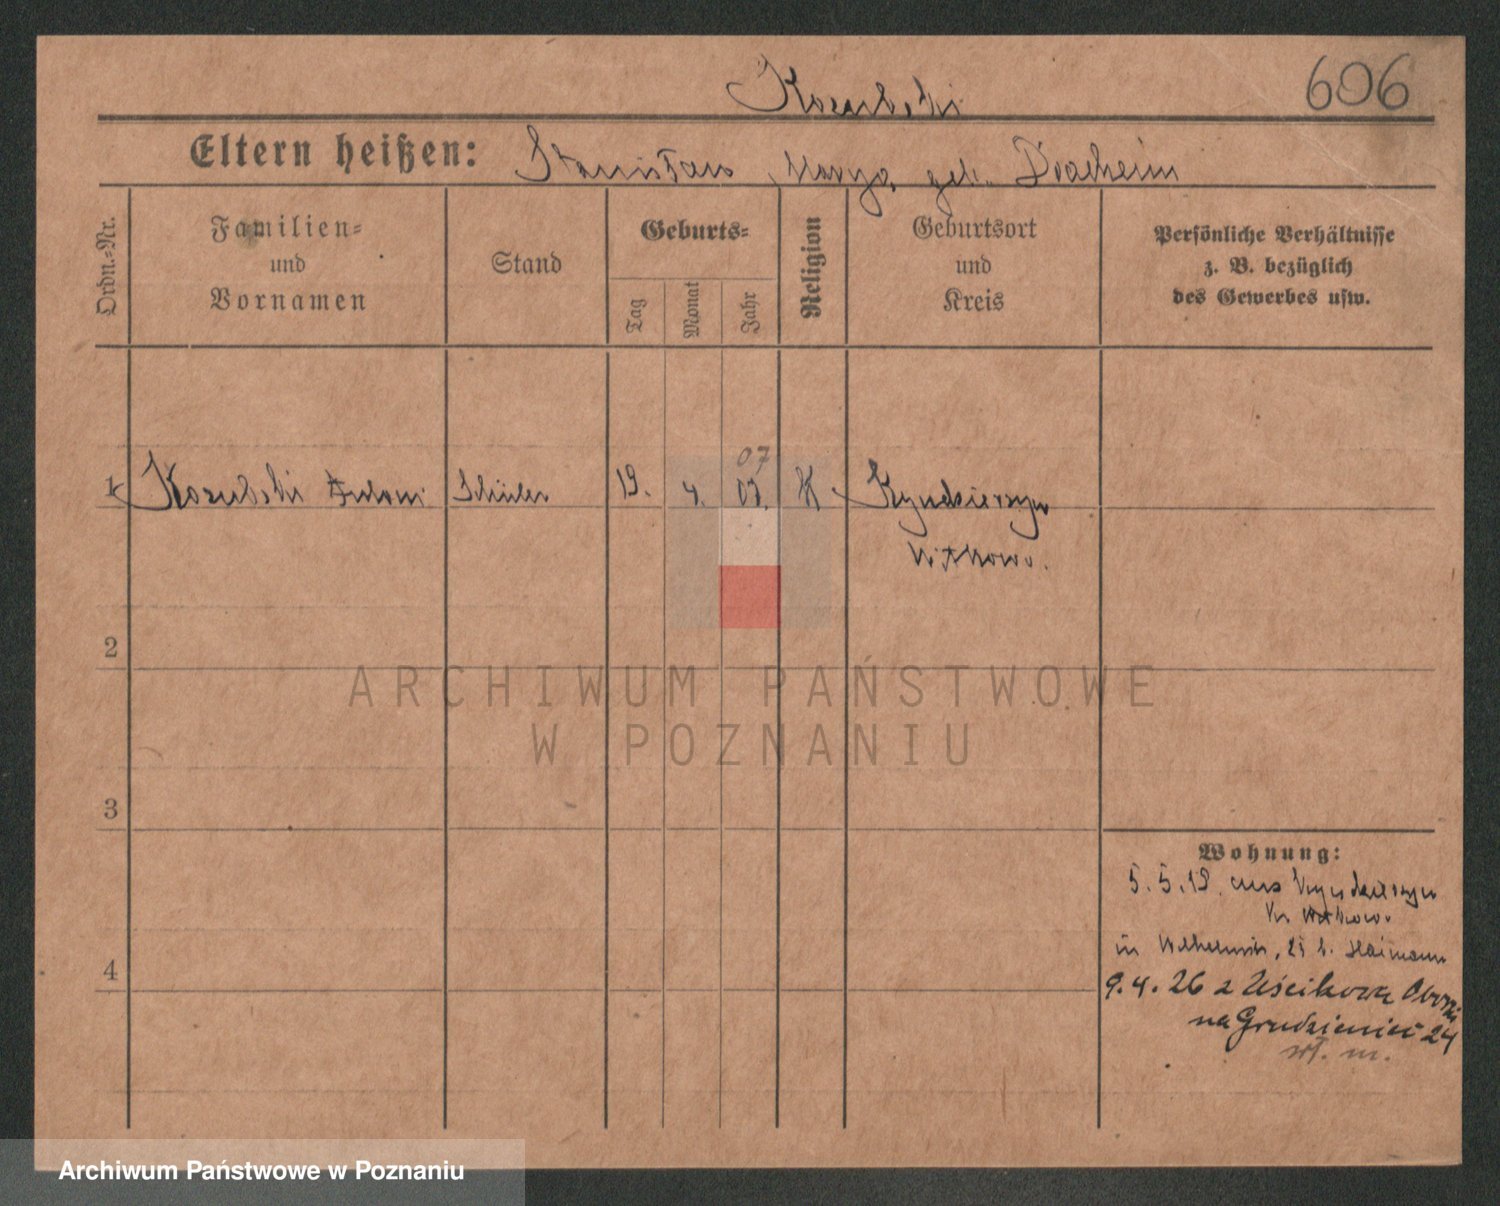 Kozubski
606
Eltern heißen: Stanisław Marya geb. Joachcim
Ordn.-Nr.
Familien-
und
Vornamen
Stand
Geburts-
Tag
Monat
Jahr
Religion
Geburtsort
und
Kreis
Persönliche Verhältnisse
z. B. bezüglich
des Gewerbes usw.
07
1 Kozubski Antoni Schüler 19. 4. 07. K. Kyndzierzyn
Witkowo.
2
ARCHIWUM PAŃSTWOWE
W POZNANIU
3
Wohnung:
5.5.19. aus Kyndzierzyn
Kr Witkowo.
in 25 b.
4
9.4.26 z Uścikowa
na Grudzieniec 24
Archiwum Państwowe w Poznaniu